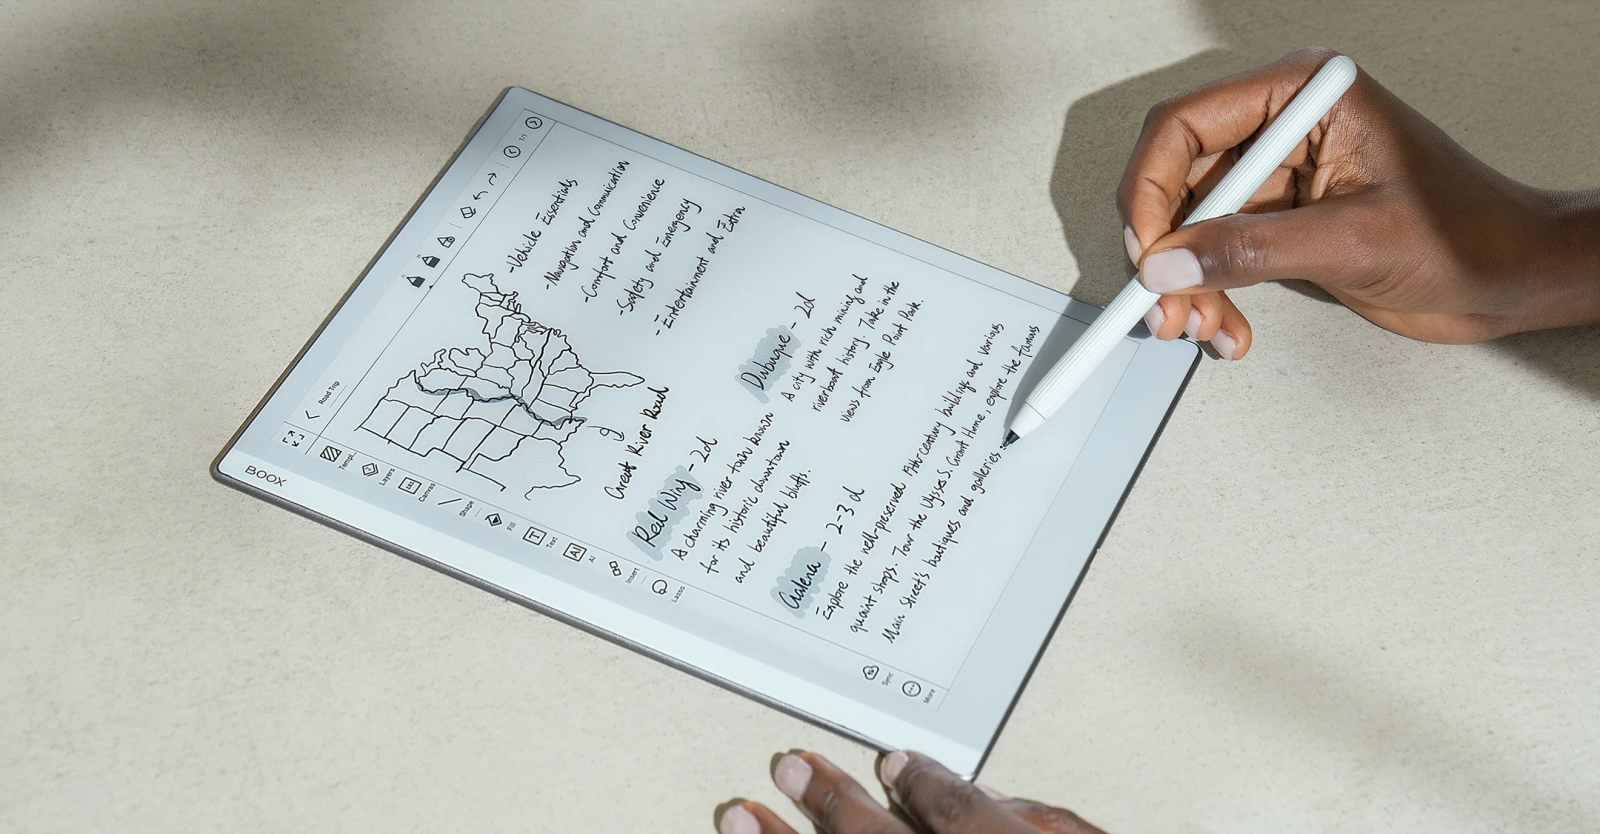 BOOX
Road Trip
1/1
Templ.
Layers
Canvas
Shape
Fill
Text
AI
Insert
Lasso
Sync
More
Great River Road
-Vehicle Essentials
-Navigation and Communication
-Comfort and Convenience
-Safety and Emergency
-Entertainment and Extra
Red Wing - 2d
A charming river town known
for its historic downtown
and beautiful bluffs.
Dubuque - 2d
A city with rich mining and
riverboat history Take in the
views from Eagle Point Park.
Galena - 2-3 d
Explore the well-preserved 19th-century buildings and various
quaint shops. Tour the Ulysses S. Grant Home, explore the famous
Main Street's boutiques and galleries